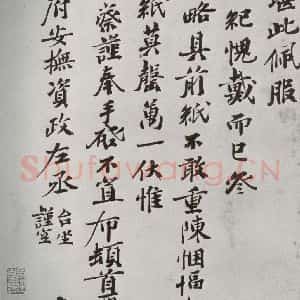 堪此佩服
紀愧戴而已冬
略具前紙不敢重陳悃愊
紙莫罄萬一伏惟
縈謹奉手啟不宣布頓首
府安撫資政左丞
台坐
謹空
Shufawang.CN